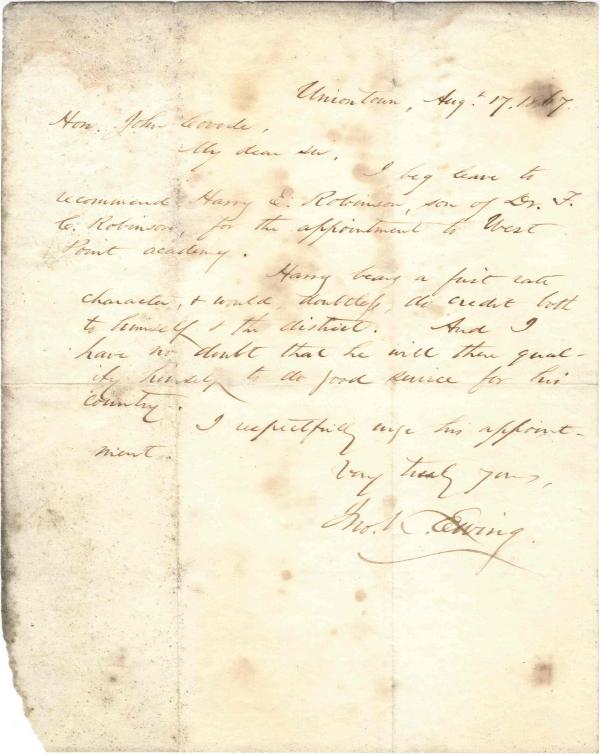 Uniontown, Aug.t 17, 1867.
Hon. John Covode,
My dear sir,
I beg leave to
recommend Harry E. Robinson, son of Dr. F.
C. Robinson, for the appointment to West
Point academy.
Harry bears a first rate
character, & would, doubtless, do credit both
to himself & the district. And I
have no doubt that he will there qual-
ify himself to do good service for his
country.
I respectfully urge his appoint-
ment.
Very truly yours,
Ewing.